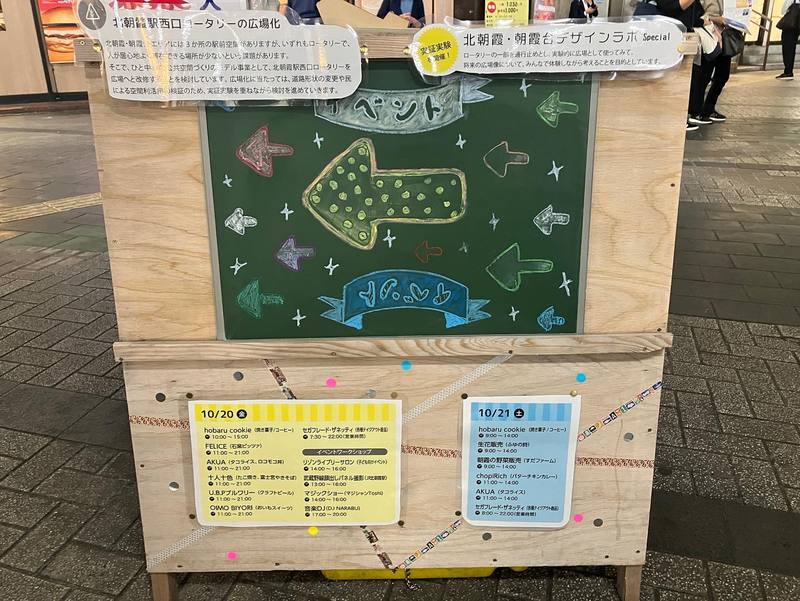 北朝霞駅西口ロータリーの広場化
北朝霞・朝霞台エリアには3か所の駅前空間がありますが、いずれもロータリーで、
人が居心地よく滞在できる場所が少ないという課題があります。
そこで、ひと中心の公共空間づくりのモデル事業として、北朝霞駅西口ロータリーを
広場へと改修することを検討しています。広場化に当たっては、道路形状の変更や民
による空間利活用の検証のため、実証実験を重ねながら検討を進めていきます。
実証実験
を開催!
北朝霞・朝霞台デザインラボ Special
ロータリーの一部を通行止めとし、実験的に広場として使ってみて、
将来の広場像について、みんなで体験しながら考えることを目的としています。
イベント
イベント
10/20 金
hobaru cookie (焼き菓子/コーヒー)
10:00 ~ 15:00
FELICE (石窯ピッツァ)
11:00 ~ 21:00
AKUA (タコライス、ロコモコ丼)
11:00 ~ 21:00
十人十色 (たこ焼き、富士宮やきそば)
11:00 ~ 21:00
U.B.Pブルワリー (クラフトビール)
11:00 ~ 21:00
OIMO BIYORI (おいもスイーツ)
11:00 ~ 21:00
セガフレード・ザネッティ (各種テイクアウト商品)
7:30 ~ 22:00(営業時間)
イベントワークショップ
リゾンライブリーサロン (子ども向けイベント)
14:00 ~ 16:00
武蔵野線顔出しパネル撮影 (JR北朝霞駅)
13:00 ~ 16:00
マジックショー (マジシャンToshi)
14:00 ~ 16:00
音楽DJ (DJ NARABU)
17:00 ~ 20:00
10/21 土
hobaru cookie (焼き菓子/コーヒー)
9:00 ~ 14:00
生花販売 (ふゆの時)
9:00 ~ 14:00
朝霞の野菜販売 (すだファーム)
9:00 ~ 14:00
chopiRich (バターチキンカレー)
11:00 ~ 14:00
AKUA (タコライス)
11:00 ~ 14:00
セガフレード・ザネッティ (各種テイクアウト商品)
8:00 ~ 22:00(営業時間)